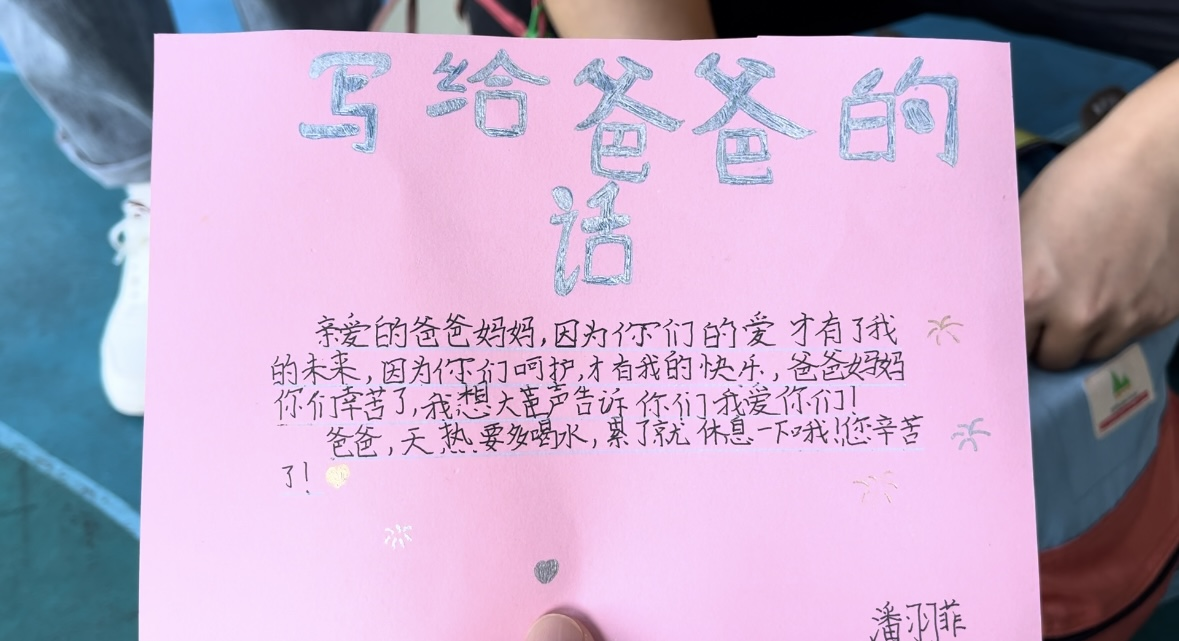 写给爸爸的
话
亲爱的爸爸妈妈,因为你们的爱才有了我
的未来,因为你们呵护,才有我的快乐,爸爸妈妈
你们辛苦了,我想大声告诉你们我爱你们!
爸爸,天热要多喝水,累了就休息一下哦!您辛苦
了!
潘羽菲